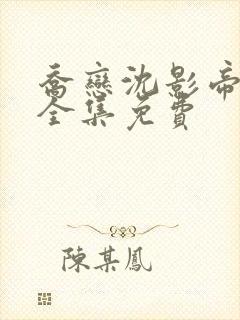 喬戀沈影帝
全集免費
陳某鳳